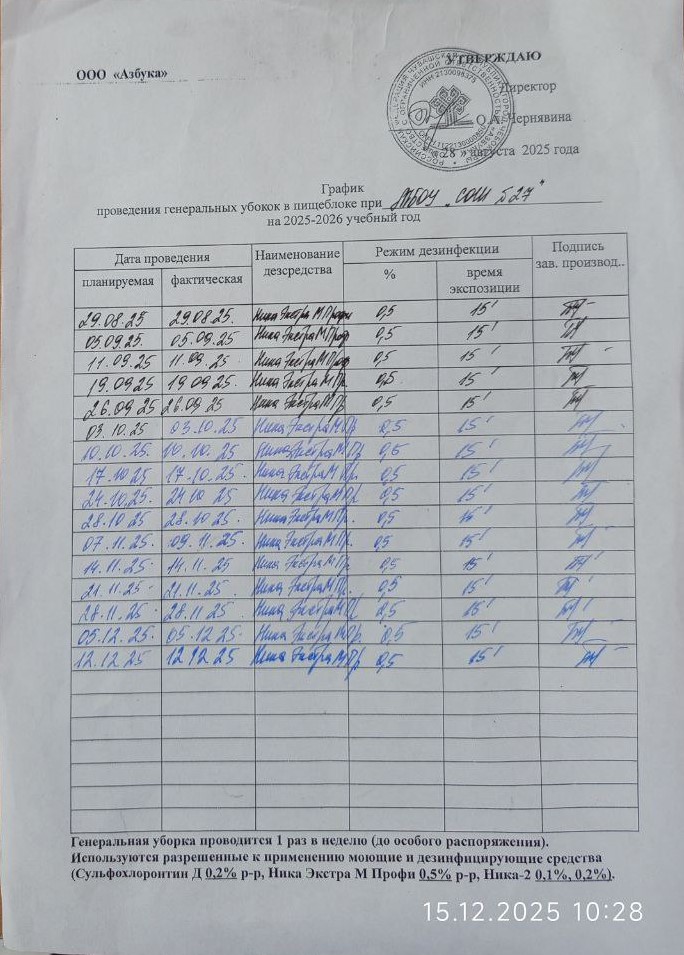 ООО «Азбука»
УТВЕРЖДАЮ
Директор
О.А. Чернявина
« 28 » августа 2025 года
График
проведения генеральных убокок в пищеблоке при МБОУ „СОШ №27"
на 2025-2026 учебный год
Дата проведения Наименование дезсредства Режим дезинфекции Подпись зав. производ..
планируемая фактическая % время экспозиции
29.08.25 29.08.25. Ника Экстра М Профи 0,5 15'
05.09.25. 05.09.25 Ника Экстра М Проф 0,5 15'
11.09.25 11.09.25 Ника Экстра М Проф 0,5 15'
19.09.25 19.09.25 Ника Экстра М Пр. 0,5 15'
26.09.25 26.09.25 Ника Экстра М Пр 0,5 15'
03.10.25 03.10.25 Ника Экстра М Пр 0,5 15'
10.10.25. 10.10.25 Ника Экстра М Пр 0,5 15'
17.10.25 17.10.25. Ника Экстра М Пр 0,5 15'
24.10.25. 24.10.25 Ника Экстра М Пр 0,5 15'
28.10.25 28.10.25. Ника Экстра М Пр. 0,5 15'
07.11.25. 09.11.25. Ника Экстра М Пр. 0,5 15'
14.11.25. 14.11.25 Ника Экстра М Пр. 0,5 15'
21.11.25. 21.11.25. Ника Экстра М Пр. 0,5 15'
28.11.25. 28.11.25 Ника Экстра М Пр 0,5 15'
05.12.25. 05.12.25. Ника Экстра М Пр. 0,5 15'
12.12.25 12.12.25 Ника Экстра М Пр 0,5 15'
Генеральная уборка проводится 1 раз в неделю (до особого распоряжения).
Используются разрешенные к применению моющие и дезинфицирующие средства
(Сульфохлоронтин Д 0,2% р-р, Ника Экстра М Профи 0,5% р-р, Ника-2 0,1%, 0,2%).
15.12.2025 10:28